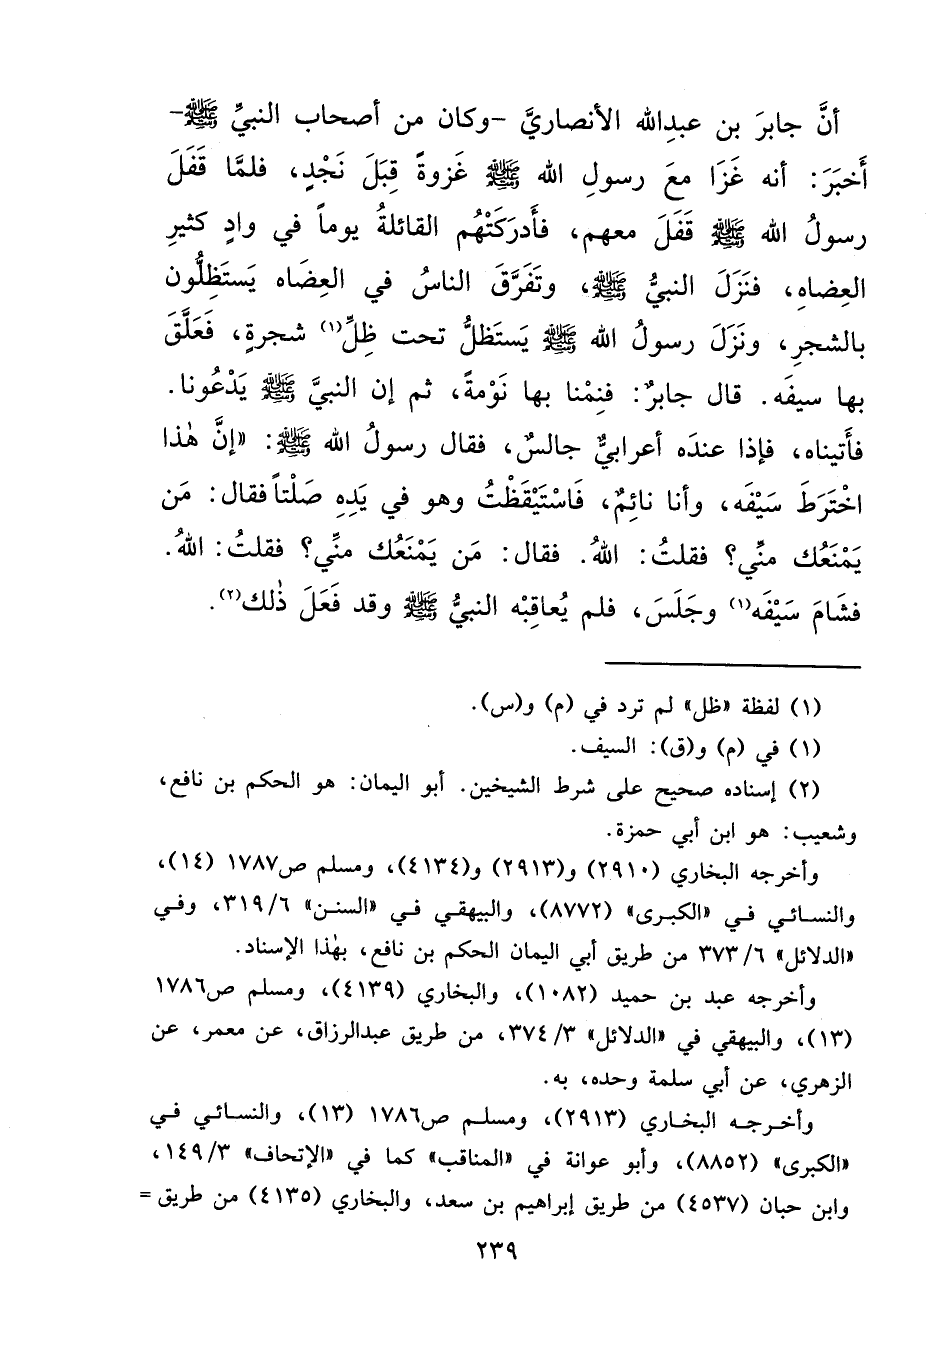 أنَّ جابرَ بن عبدِالله الأنصاريَّ -وكان من أصحاب النبيِّ ﷺ-
أَخبَرَ: أنه غَزَا معَ رسولِ الله ﷺ غَزوةً قِبَلَ نَجْدٍ، فلمَّا قَفَلَ
رسولُ الله ﷺ قَفَلَ معهم، فأَدرَكَتْهُم القائلةُ يوماً في وادٍ كثيرِ
العِضاهِ، فنَزَلَ النبيُّ ﷺ، وتَفَرَّقَ الناسُ في العِضَاه يَستَظِلُّون
بالشجرِ، ونَزَلَ رسولُ الله ﷺ يَستَظلُّ تحت ظِلِّ(١) شجرةٍ، فَعَلَّقَ
بها سيفَه. قال جابرٌ: فنِمْنا بها نَوْمةً، ثم إن النبيَّ ﷺ يَدْعُونا.
فأَتيناه، فإذا عندَه أعرابيٌّ جالسٌ، فقال رسولُ الله ﷺ: «إنَّ هٰذا
اخْتَرَطَ سَيْفَه، وأنا نائِمٌ، فَاسْتَيْقَظْتُ وهو في يَدِهِ صَلْتاً فقال: مَن
يَمْنَعُك منِّي؟ فقلتُ: اللهُ. فقال: مَن يَمْنَعُك منِّي؟ فقلتُ: اللهُ.
فشَامَ سَيْفَه(١) وجَلَسَ، فلم يُعاقِبْه النبيُّ ﷺ وقد فَعَلَ ذٰلك(٢).
(١) لفظة «ظل» لم ترد في (م) و(س).
(١) في (م) و(ق): السيف.
(٢) إسناده صحيح على شرط الشيخين. أبو اليمان: هو الحكم بن نافع،
وشعيب: هو ابن أبي حمزة.
وأخرجه البخاري (٢٩١٠) و(٢٩١٣) و(٤١٣٤)، ومسلم ص١٧٨٧ (١٤)،
والنسائي في «الكبرى» (٨٧٧٢)، والبيهقي في «السنن» ٣١٩/٦، وفي
«الدلائل» ٣٧٣/٦ من طريق أبي اليمان الحكم بن نافع، بهٰذا الإسناد.
وأخرجه عبد بن حميد (١٠٨٢)، والبخاري (٤١٣٩)، ومسلم ص١٧٨٦
(١٣)، والبيهقي في «الدلائل» ٣٧٤/٣، من طريق عبدالرزاق، عن معمر، عن
الزهري، عن أبي سلمة وحده، به.
وأخرجه البخاري (٢٩١٣)، ومسلم ص١٧٨٦ (١٣)، والنسائي في
«الكبرى» (٨٨٥٢)، وأبو عوانة في «المناقب» كما في «الإتحاف» ١٤٩/٣،
وابن حبان (٤٥٣٧) من طريق إبراهيم بن سعد، والبخاري (٤١٣٥) من طريق =
٢٣٩